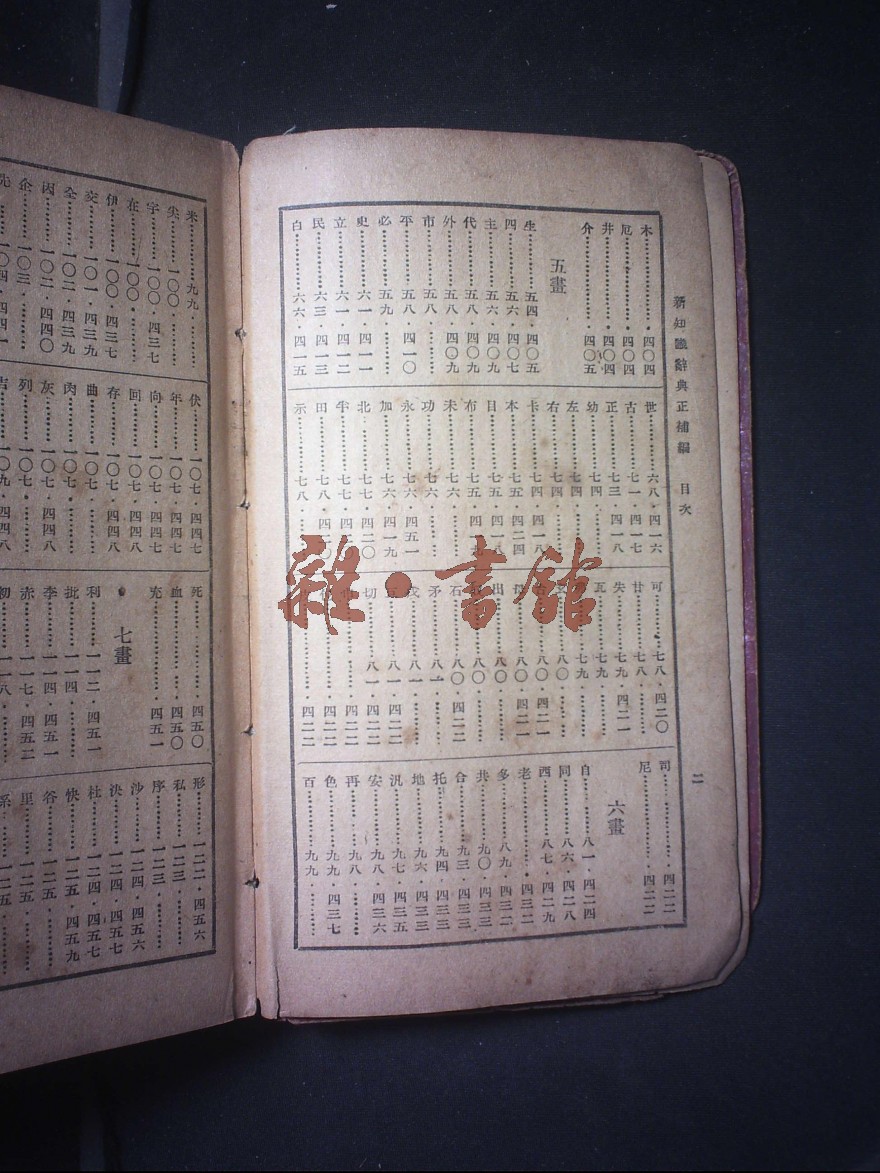 新知識辭典正補編 目次
二
木……………四〇四
厄……………四〇四
井……………四〇四
介……………四〇五
五畫
生……五四・四〇五
四……五六・四〇七
主……五六・四〇九
代……五八・四〇九
外……五八・四〇九
市……五八・………
平……五八・四一〇
必……五九・………
史……六一・四一一
立……六一・四一二
民……六三・四一三
白……六六・四一五
世……六八・四一六
古……七一・四一七
正……七三・四一八
幼……七四・………
左……七四
右……七四
卡……七四・四一八
本……七五・四二四
目……七五・四一八
布……七五
未……七六
功……七六・………
永……七六・四五一
加……七六・四一九
北……七七・四二〇
牛……七七
田……七八
示……七八・………
可……七八・四二〇
甘……七八
失……七九・四二一
瓦……七九
七九
八〇
八〇・四二一
八〇・四二一
出……八〇
八〇
石……八〇・四二二
矛……八一
戊……八一
八一・四二二
切……八一・四二二
四二二
四二二
四二二
司……………四二二
尼……………四二二
六畫
自……八一・四二四
同……八六・四二八
西……八七・四二九
老……………四三二
多……八九・四三二
共……九〇・四三三
合……九三・四三三
托……九四・四三三
地……九六・四三三
汎……九七・四三五
安……九八・四三六
再……九八・………
色……九九・四三七
百……九九・………
米……九九・………
尖……一〇〇………
宇……一〇〇・四三七
在……一〇〇・………
伊……一〇〇・四三七
交……一〇一・四三九
全……一〇二・四三九
因……一〇二・四四〇
企……一〇三・………
先……一〇四・四四一
伏……一〇七・四四七
年……一〇七・四四七
向……一〇七・四四七
回……一〇七・四四八
存……一〇七・四四八
曲……一〇七・………
肉……一〇七・………
灰……一〇七・四四八
列……一〇七・………
吉……一〇九・四四八
死……………四五〇
血……………四五〇
充……………四五一
七畫
利……一一二・四五一
批……一一四・………
李……一一四・四五一
赤……一一七・四五二
初……一一八・………
形……一二二・四五六
私……一二三・………
序……一二三・………
沙……一二四・四五六
決……一二四・四五七
杜……一二四・四五七
快……一二五・四五九
谷……一二五・………
里……一二五・………
系……一二五・………
雜・書館